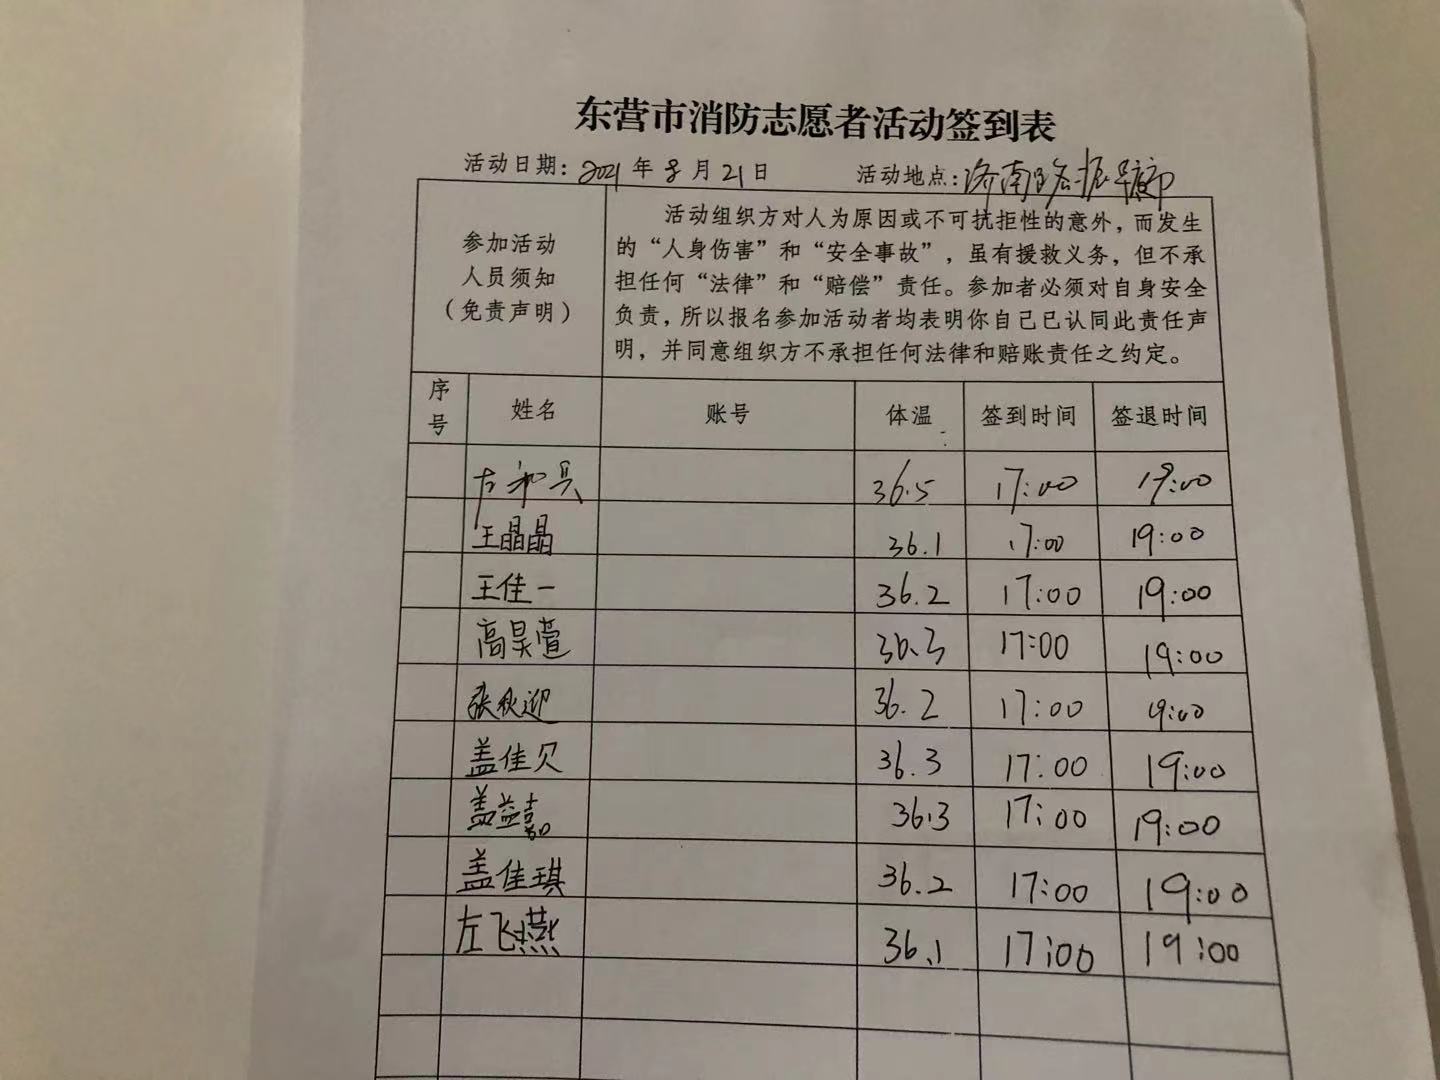 东营市消防志愿者活动签到表
活动日期：2021年8月21日 活动地点：济南路
参加活动
人员须知
（免责声明）
活动组织方对人为原因或不可抗拒性的意外，而发生
的“人身伤害”和“安全事故”，虽有援救义务，但不承
担任何“法律”和“赔偿”责任。参加者必须对自身安全
负责，所以报名参加活动者均表明你自己已认同此责任声
明，并同意组织方不承担任何法律和赔账责任之约定。
序号 姓名 账号 体温 签到时间 签退时间
36.5 17:00 19:00
王晶晶 36.1 17:00 19:00
王佳一 36.2 17:00 19:00
高昊萱 36.3 17:00 19:00
张秋迎 36.2 17:00 19:00
盖佳贝 36.3 17:00 19:00
盖益嘉 36.3 17:00 19:00
盖佳琪 36.2 17:00 19:00
左飞燕 36.1 17:00 19:00